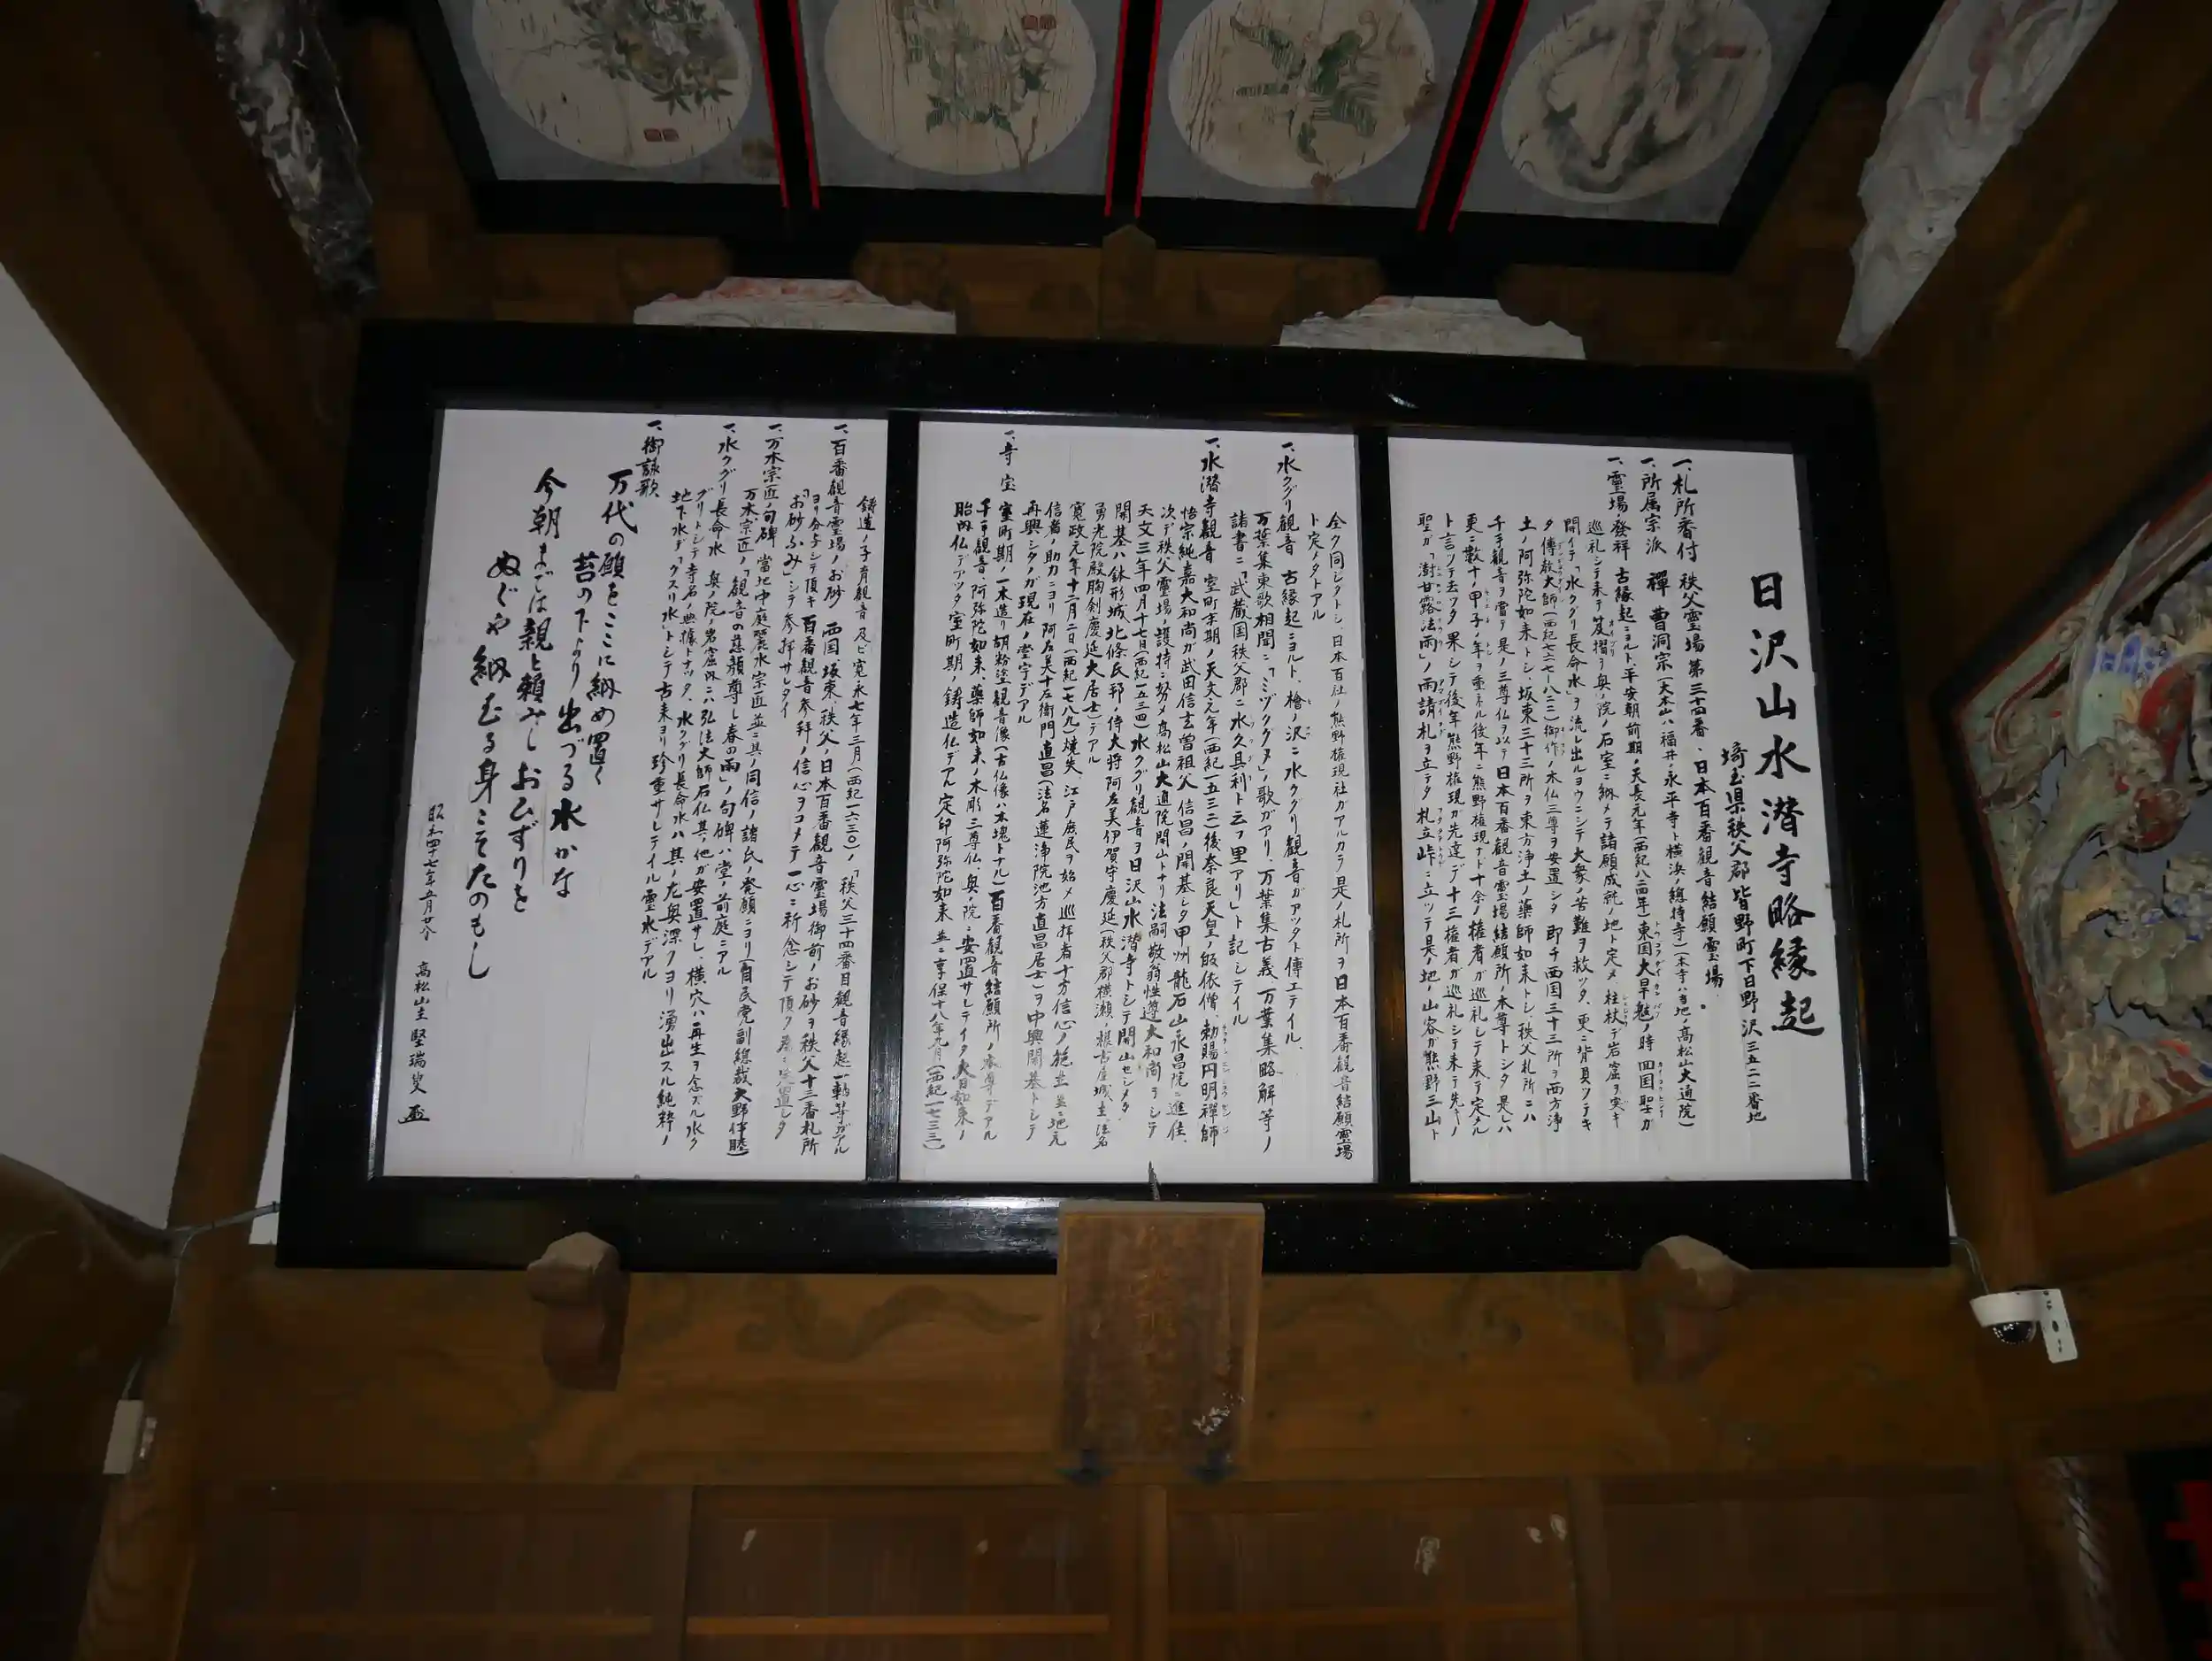 日沢山水潜寺略縁起
埼玉県秩父郡皆野町下日野沢三五二二番地
一、札所番付 秩父霊場第三十四番、日本百番観音結願霊場
一、所属宗派 禪 曹洞宗(大本山ハ福井ノ永平寺ト横浜ノ總持寺)(本寺ハ当地ノ高松山大通院)
一、霊場ノ發祥 古縁起ニヨルト、平安朝前期ノ天長元年(西紀八二四年)東国大旱魃ノ時 四国聖ガ
巡礼シテ来テ笈摺ヲ奥ノ院ノ石室ニ納メテ諸願成就ノ地ト定メ、柱杖デ岩窟ヲ突キ
開イテ「水クグリ長命水」ヲ流レ出ルヨウニシテ大衆ノ苦難ヲ救ッタ、更ニ背負ツテキ
タ傳教大師(西紀七六七-八二二)御作ノ木仏三尊ヲ安置シタ 即チ西国三十三所ヲ西方浄
土ノ阿弥陀如来トシ、坂東三十三所ヲ東方浄土ノ薬師如来トシ、秩父札所ニハ
千手観音ヲ是ノ三尊仏ヲ以テ日本百番観音霊場結願所ノ本尊トシタ 是レハ
更ニ数十ノ甲子ノ年ヲ重ネル後年ニ熊野権現ナド十余ノ権者ガ巡礼シテ来テ定メル
ト言ツテ去ツタ 果シテ後年熊野権現ガ先達デ十三権者ガ巡礼シテ来テ先キノ
聖ガ「澍甘露法雨」ノ雨請札ヲ立テタ札立峠ニ立ツテ是ノ地ノ山容ガ熊野三山ト
全ク同ジクトシ、日本百社ノ熊野権現社ガアルカラ是ノ札所ヲ日本百番観音結願霊場
ト定メタトアル
一、水クグリ観音 古縁起ニヨルト、檜ノ沢ニ水クグリ観音ガアツタト傳エテイル、
万葉集東歌相聞ニ「ミヅクグヌ」ノ歌ガアリ、万葉集古義、万葉集略解等ノ
諸書ニ「武蔵国秩父郡ニ水久具利ト云フ里アリ」ト記シテイル
一、水潜寺観音 室町末期ノ天文元年(西紀一五三二)後奈良天皇ノ皈依僧、勅賜円明禅師
悟宗純嘉大和尚ガ武田信玄曽祖父 信昌ノ開基シタ甲州龍石山永昌院ニ進住、
次デ秩父霊場ノ護持ニ努メ高松山大通院開山トナリ法嗣 敬翁性遵大和尚ヲシテ
天文三年四月十七日(西紀一五三四)水クグリ観音ヲ日沢山水潜寺トシテ開山セシメタ
開基ハ鉢形城北條氏邦ノ侍大将阿左美伊賀守慶延(秩父郡横瀬ノ根古屋城主、法名
勇光院殿胸剣慶延大居士)デアル
寛政元年十二月二日(西紀一七八九)焼失、江戸庶民ヲ始メ巡拝者十方信心ノ施主並ニ地元
信者ノ助力ニヨリ阿左美十左衛門直昌(法名蓮浄院池方直昌居士)ヲ中興開基トシテ
再興シタノガ現在ノ堂宇デアル
一、寺宝 室町期ノ一木造リ胡粉塗観音像(古仏像ハ木塊トナル)百番観音結願所ノ本尊デアル
千手観音、阿弥陀如来、薬師如来ノ木彫三尊仏、奥ノ院ニ安置サレテイタ大日如来ノ
胎内仏デアツタ室町期ノ鋳造仏デアル定印阿弥陀如来 並ニ享保十八年九月(西紀一七三三)
鋳造ノ子育観音 及ビ寛永七年三月(西紀一六三〇)ノ「秩父三十四番目観音縁起一軸等ガアル
一、百番観音霊場ノお砂 西国、坂東、秩父ノ日本百番観音霊場御前ノお砂ヲ秩父十三番札所
ヨリ分与シテ頂キ百番観音参拜ノ信心ヲコメテ一心ニ祈念シテ頂ク為ニ安置シタ
「お砂ふみ」シテ参拝サレタイ
一、万木宗匠ノ句碑 當地中庭麗水宗匠並ニ其ノ同信ノ諸氏ノ発願ニヨリ(自民党副総裁大野伴睦)
万木宗匠ノ「観音の慈顔尊し春の雨」ノ句碑ハ堂ノ前庭ニアル
一、水クグリ長命水 奥ノ院ノ岩窟内ニハ弘法大師石仏其ノ他ガ安置サレ、横穴ハ再生ヲ念ズル水ク
グリトシテ寺名ノ典據トナッタ、水クグリ長命水ハ其ノ尤奥深クヨリ湧出スル純粋ノ
地下水デ「クスリ水」トシテ古来ヨリ珍重サレテイル霊水デアル
一、御詠歌
万代の願をここに納め置く
苔の下より出づる水かな
今朝までは親と頼みしおひずりを
ぬぐや納むる身こそたのもし
昭和四十七年五月廿八
高松山主 堅瑞叟